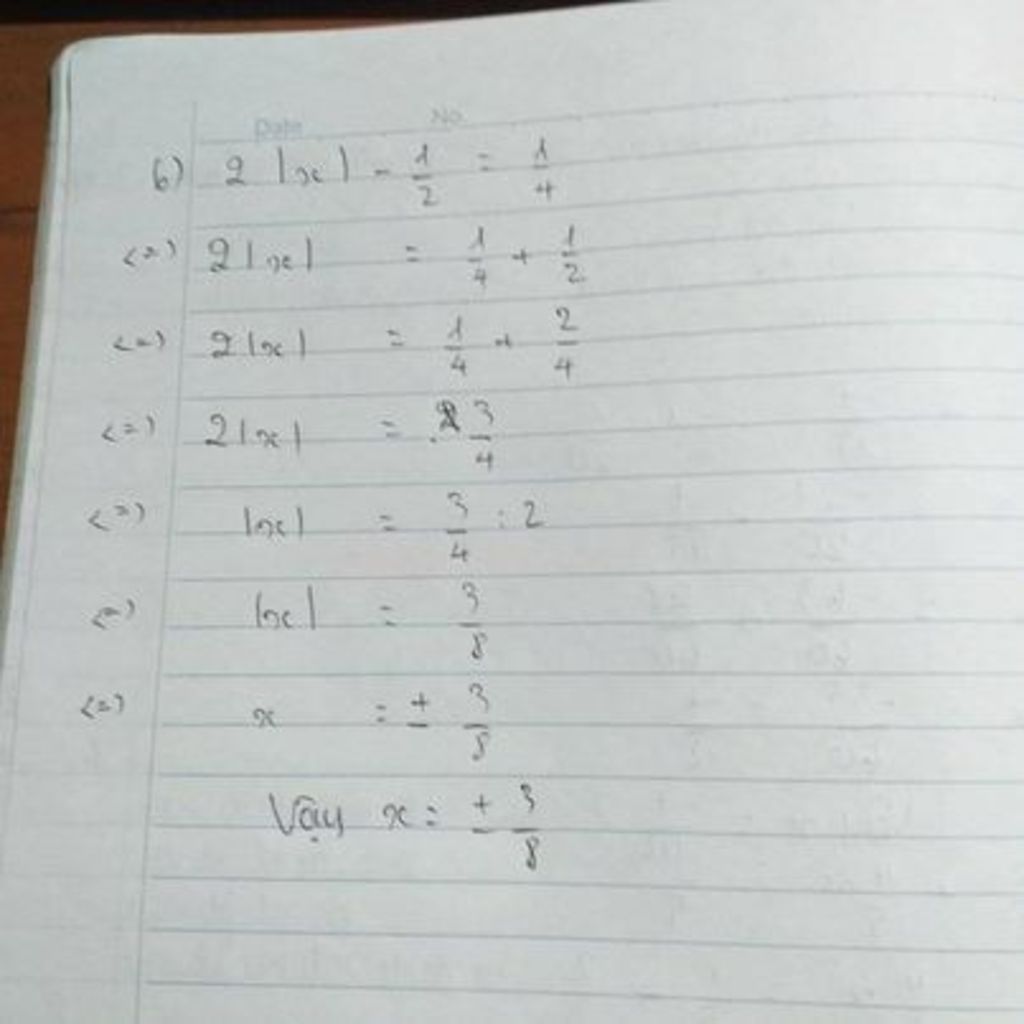 Date No
b) 2 |x| - 1/2 = 1/4
<=> 2|x| = 1/4 + 1/2
<=> 2|x| = 1/4 + 2/4
<=> 2|x| = 3/4
<=> |x| = 3/4 : 2
<=> |x| = 3/8
<=> x = ± 3/8
Vậy x = ± 3/8